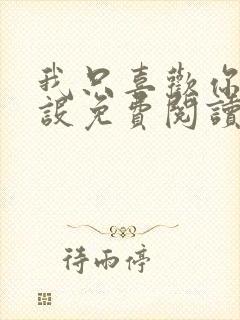 我只喜歡你
設免費閱讀
待雨停